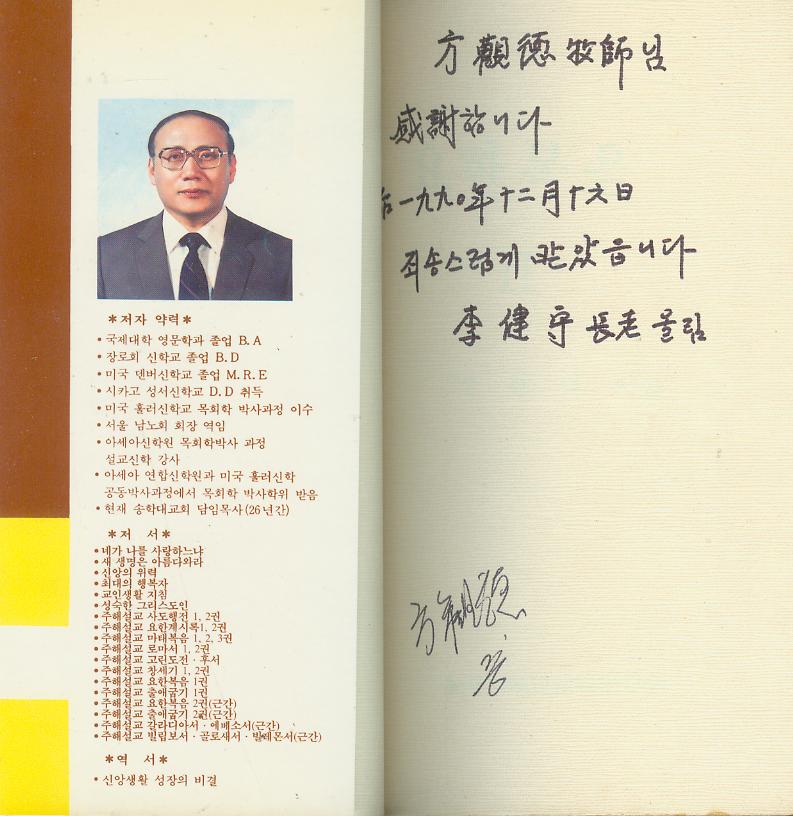 *저자 약력*
• 국제대학 영문학과 졸업 B.A
• 장로회 신학교 졸업 B.D
• 미국 덴버신학교 졸업 M.R.E
• 시카고 성서신학교 D.D 취득
• 미국 훌러신학교 목회학 박사과정 이수
• 서울 남노회 회장 역임
• 아세아신학원 목회학박사 과정
설교신학 강사
• 아세아 연합신학원과 미국 훌러신학
공동박사과정에서 목회학 박사학위 받음
• 현재 송학대교회 담임목사(26년간)
*저 서*
• 네가 나를 사랑하느냐
• 새 생명은 아름다와라
• 신앙의 위력
• 최대의 행복자
• 교인생활 지침
• 성숙한 그리스도인
• 주해설교 사도행전 1, 2권
• 주해설교 요한계시록1, 2권
• 주해설교 마태복음 1, 2, 3권
• 주해설교 로마서 1, 2권
• 주해설교 고린도전·후서
• 주해설교 창세기 1, 2권
• 주해설교 요한복음 1권
• 주해설교 출애굽기 1권
• 주해설교 요한복음 2권(근간)
• 주해설교 출애굽기 2권(근간)
• 주해설교 갈라디아서·에베소서(근간)
• 주해설교 빌립보서·골로새서·빌레몬서(근간)
*역 서*
• 신앙생활 성장의 비결
方觀德牧師님
感謝합니다
一九九○年十二月十六日
죄송스럽게 받았읍니다
李健守 長老 올림